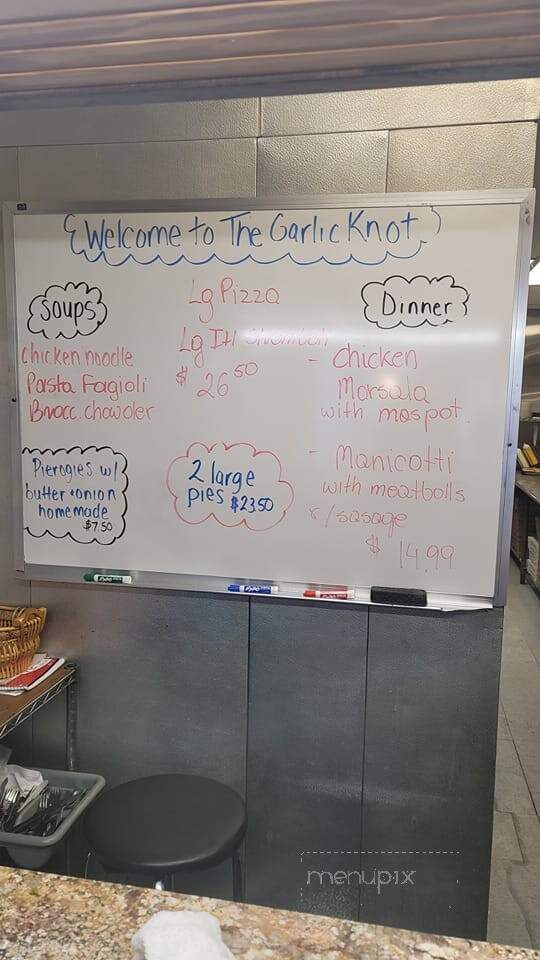 Welcome to The Garlic Knot
Soups
chicken noodle
Pasta Fagioli
Brocc. chowder
Pierogies w/
butter + onion
homemade
$7.50
Lg Pizza
Lg Itl Stromboli
$ 26 50
2 large
pies $23.50
Dinner
- Chicken
Marsala
with maspot.
- Manicotti
with meatballs
r/sasage
$ 14.99
EXPO
EXPO
EXPO
menupix